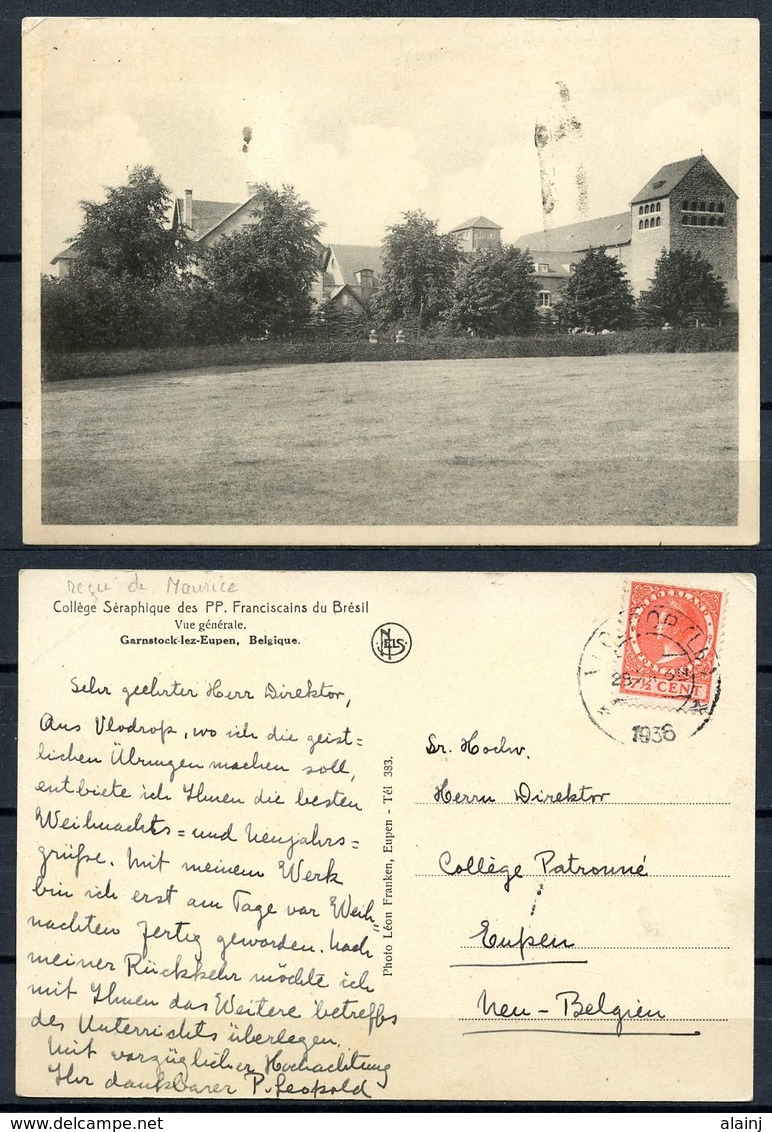 reçu de Maurice
Collège Séraphique des PP. Franciscains du Brésil
Vue générale.
Garnstock-lez-Eupen, Belgique.
NELS
Sehr geehrter Herr Direktor,
Aus Vlodrop, wo ich die geist=
lichen Übungen machen soll,
entbiete ich Ihnen die besten
Weihnachts= und Neujahrs=
grüße. Mit meinem Werk
bin ich erst am Tage vor Weih„
nachten fertig geworden. Nach
meiner Rückkehr möchte ich
mit Ihnen das Weitere betreffs
des Unterrichts überlegen.
Mit vorzüglicher Hochachtung
Ihr dankbarer P. Leopold
Photo Léon Franken, Eupen - Tél 383.
NEDERLAND
7½ CENT
1936
Sr. Hochw.
Herrn Direktor
Collège Patronné
Eupen
Neu-Belgien
alainj
www.delcampe.net